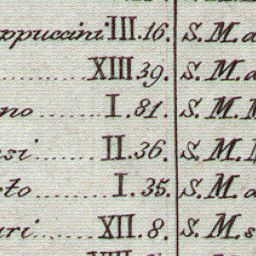 ppuccini III.16. S.M.d
XIII 39. S.M.a
no I.81. S.M.M
si II.36. S.M.
to I.35. S.M.a
uri XII.8. S.M.s